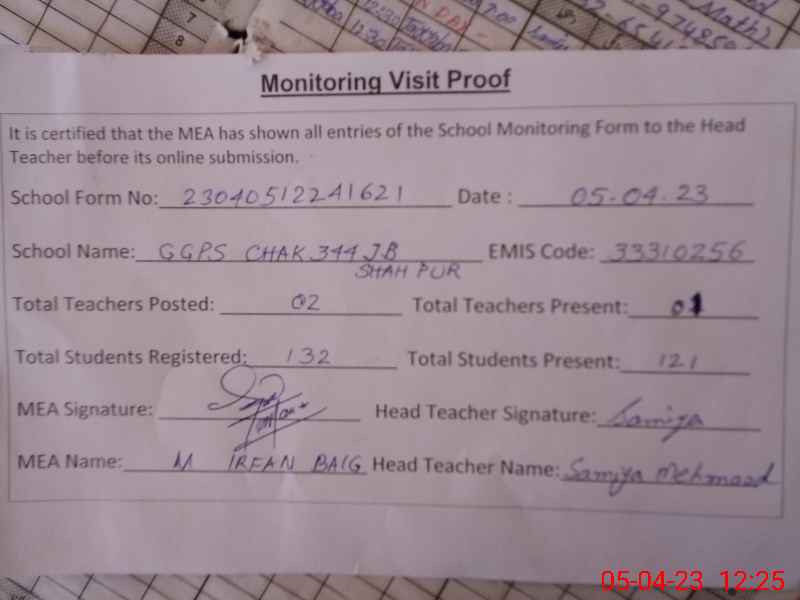 Monitoring Visit Proof
It is certified that the MEA has shown all entries of the School Monitoring Form to the Head
Teacher before its online submission.
School Form No: 23040512241621 Date : 05-04.23
School Name: GGPS CHAK 344 JB EMIS Code: 33310256
SHAH PUR
Total Teachers Posted: 02 Total Teachers Present: 01
Total Students Registered: 132 Total Students Present: 121
MEA Signature: Head Teacher Signature: Samiya
MEA Name: M IRFAN BAIG Head Teacher Name: Samiya Mehmood
05-04-23 12:25